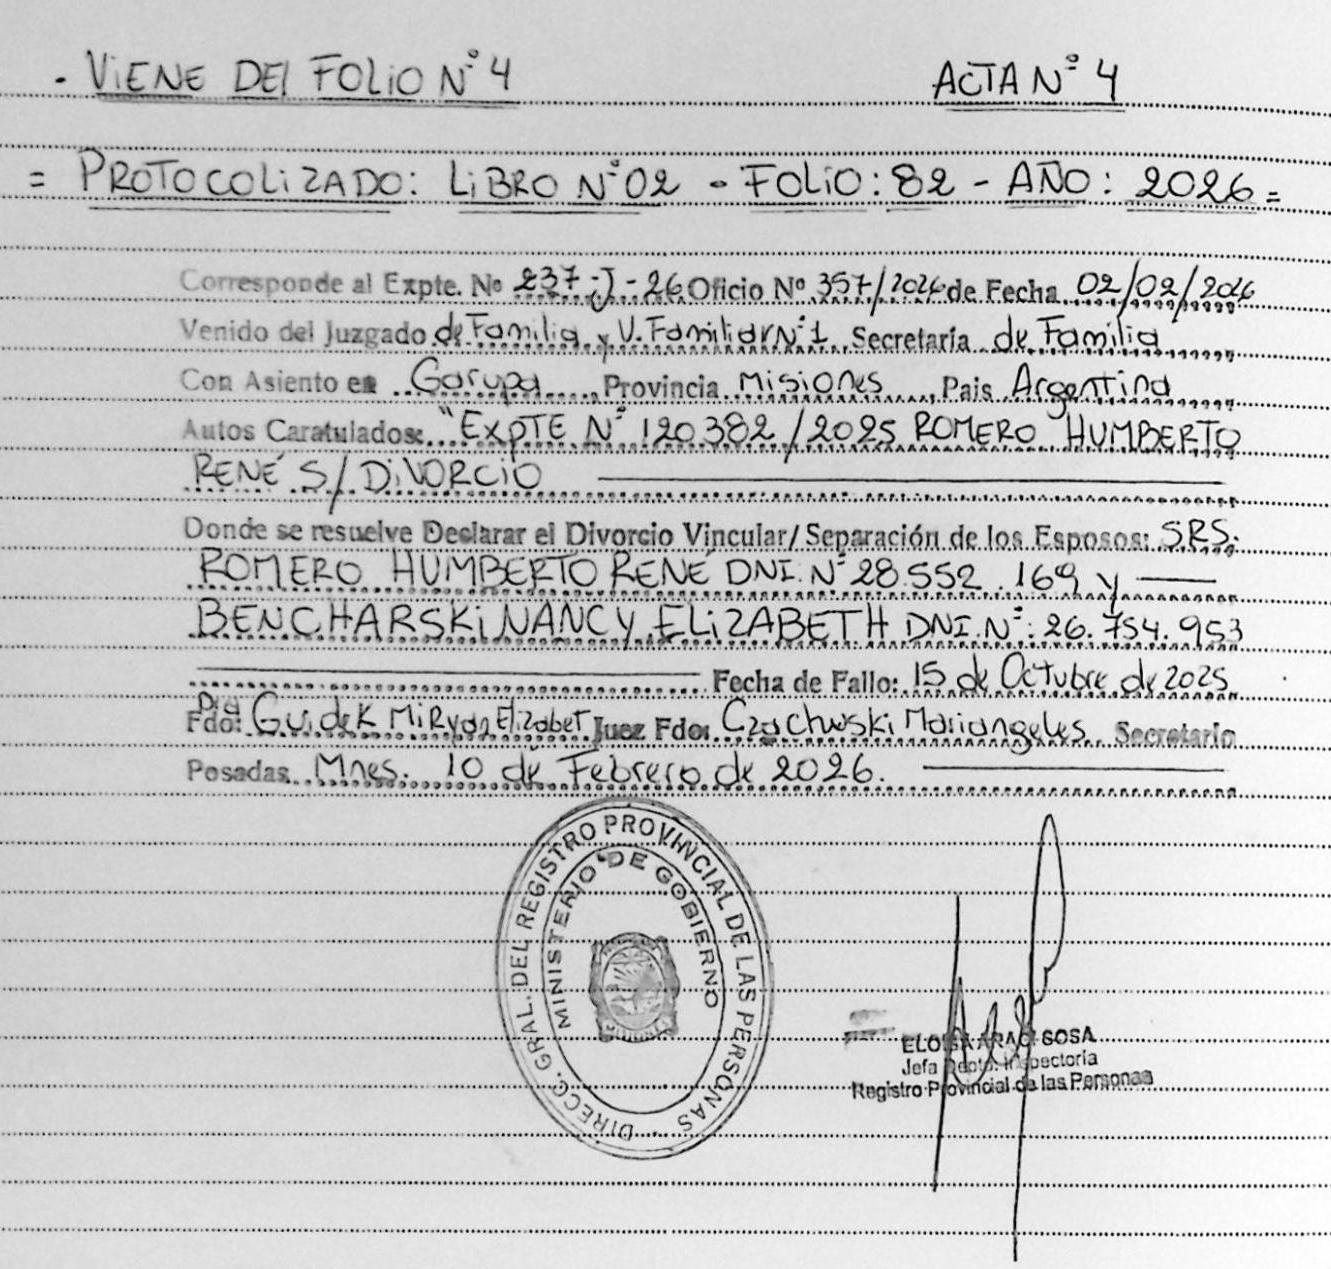 - VIENE DEL FOLIO N° 4 ACTA N° 4
= PROTOCOLIZADO: LIBRO N° 02 - FOLIO: 82 - AÑO: 2026 =
Corresponde al Expte. Nº 237-J-26 Oficio Nº 357/2026 de Fecha 02/02/2026
Venido del Juzgado de Familia y V. Familiar N° 1 Secretaría de Familia
Con Asiento en Garupá, Provincia Misiones, Pais Argentina
Autos Caratulados: "EXPTE N° 120382/2025 ROMERO HUMBERTO
RENÉ S/ DIVORCIO
Donde se resuelve Declarar el Divorcio Vincular/ Separación de los Esposos: SRS.
ROMERO HUMBERTO RENÉ DNI. N° 28.552.169 y
BENCHARSKI NANCY ELIZABETH DNI. N°: 26.754.953
Fecha de Fallo: 15 de Octubre de 2025
Fdo: Dra Guidek Miryan Elizabet Juez Fdo: Mariangeles Secretario
Posadas, Mnes. 10 de Febrero de 2026.
DIRECC. GRAL. DEL REGISTRO PROVINCIAL DE LAS PERSONAS
MINISTERIO DE GOBIERNO
SOSA
Jefa Depto. Inspectoria
Registro Provincial de las Personas